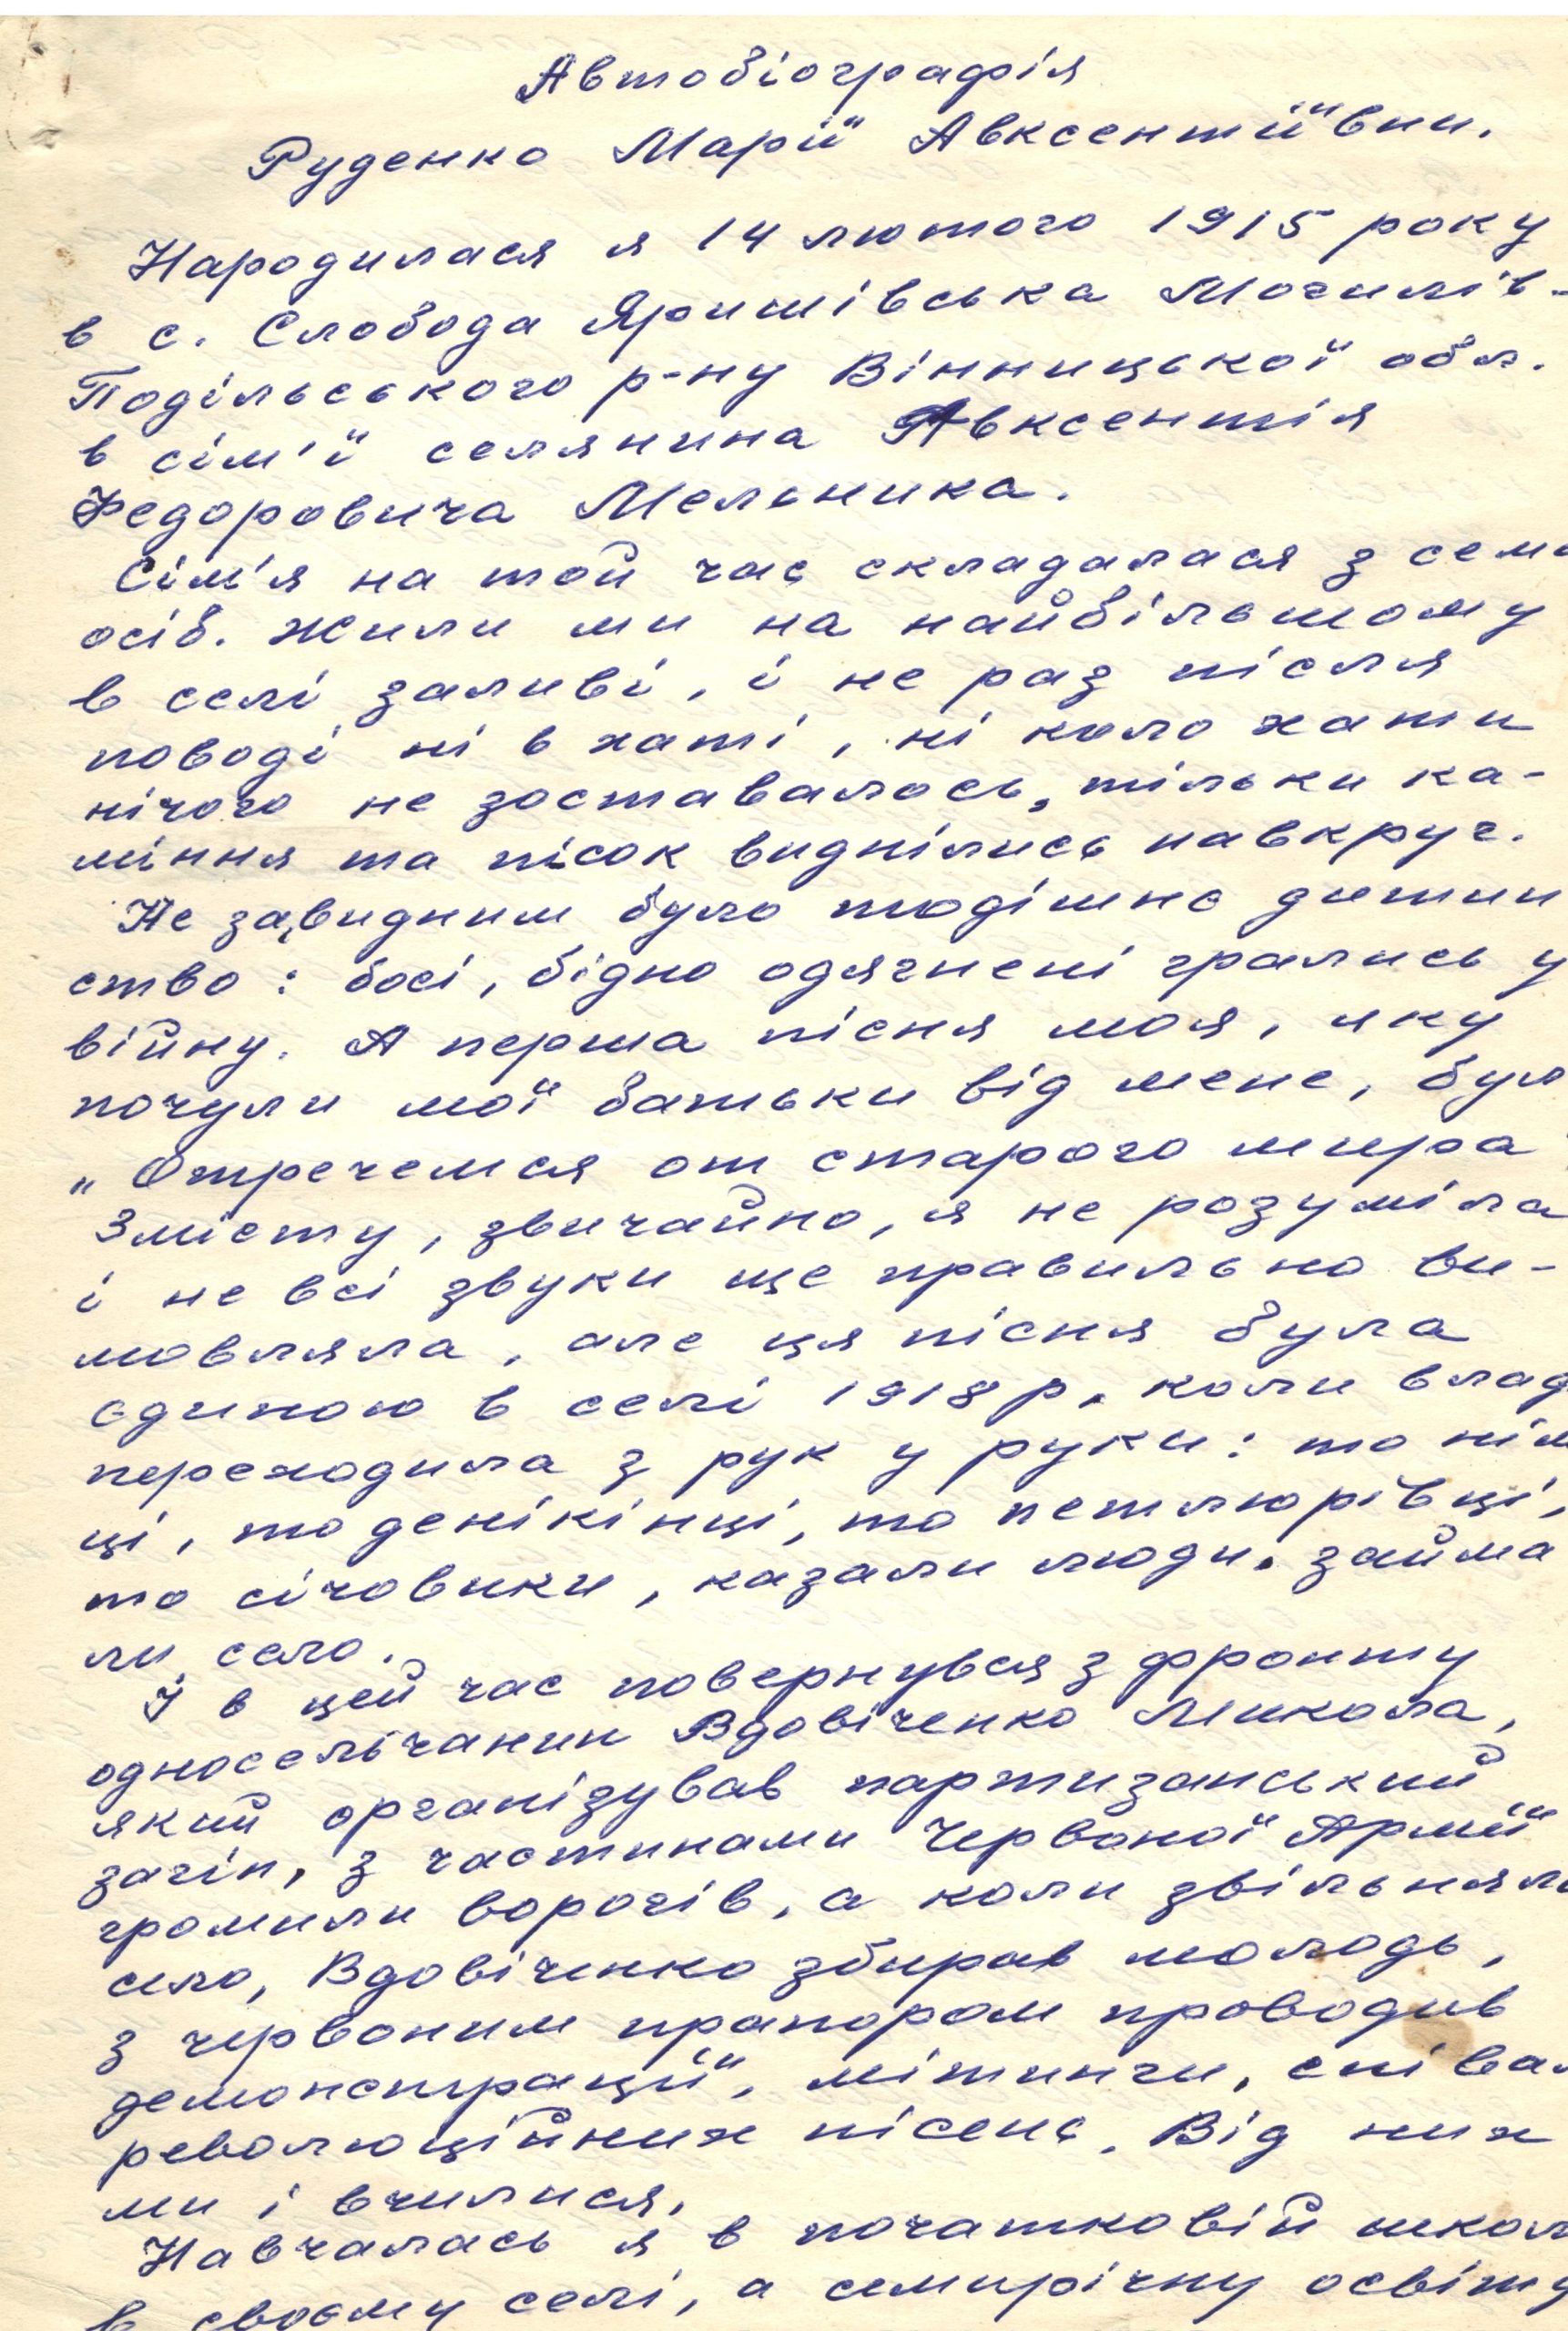 Автобіографія
Руденко Марії Авксентіївни.
Народилася я 14 лютого 1915 року
в с. Слобода Яришівська Могилів-
Подільського р-ну Вінницької обл.
в сім'ї селянина Авксентія
Федоровича Мельника.
Сім'я на той час складалася з семи
осіб. Жили ми на найбільшому
в селі заливі, і не раз після
поводі ні в хаті, ні коло хати
нічого не зоставалось, тільки ка-
міння та пісок виднілись навкруг.
Не завидним було тодішнє дитин
ство: босі, бідно одягнені грались у
війну. А перша пісня моя, яку
почули мої батьки від мене, бул
„Отречемся от старого мира
Змісту, звичайно, я не розуміла
і не всі звуки ще правильно ви-
мовляла, але ця пісня була
єдиною в селі 1918 р. коли влад
переходила з рук у руки: то нім
ці, то денікінці, то петлюрівці,
то січовики, казали люди, займа
ли село.
І в цей час повернувся з фронту
односельчанин Вдовіченко Микола,
який організував партизанський
загін, з частинами Червоної Армії
громили ворогів, а коли звільняли
село, Вдовіченко збирав молодь,
з червоним прапором проводив
демонстрації, мітинги, співал
революційних пісень. Від них
ми і вчилися.
Навчалась я в початковій школ
в своєму селі, а семирічну освіту